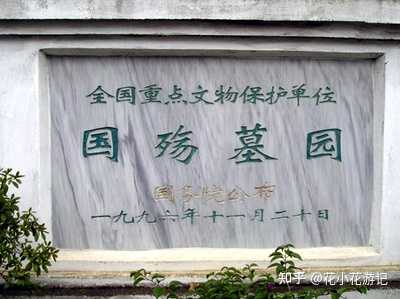 全国重点文物保护单位
国殇墓园
国务院公布
一九九六年十一月二十日
知乎 @花小花游记